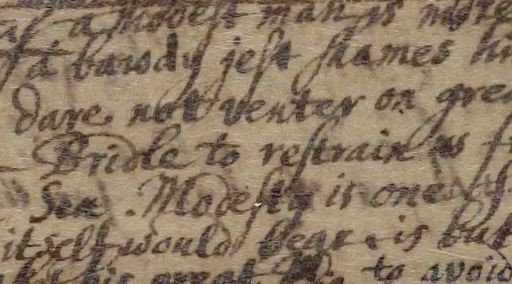 a modest man is more
a bawdy jest shames hi
dare not venter on grea
Bridle to restrain us f
Sin. Modesty is one of
it self would begg, is but
his great to avoid